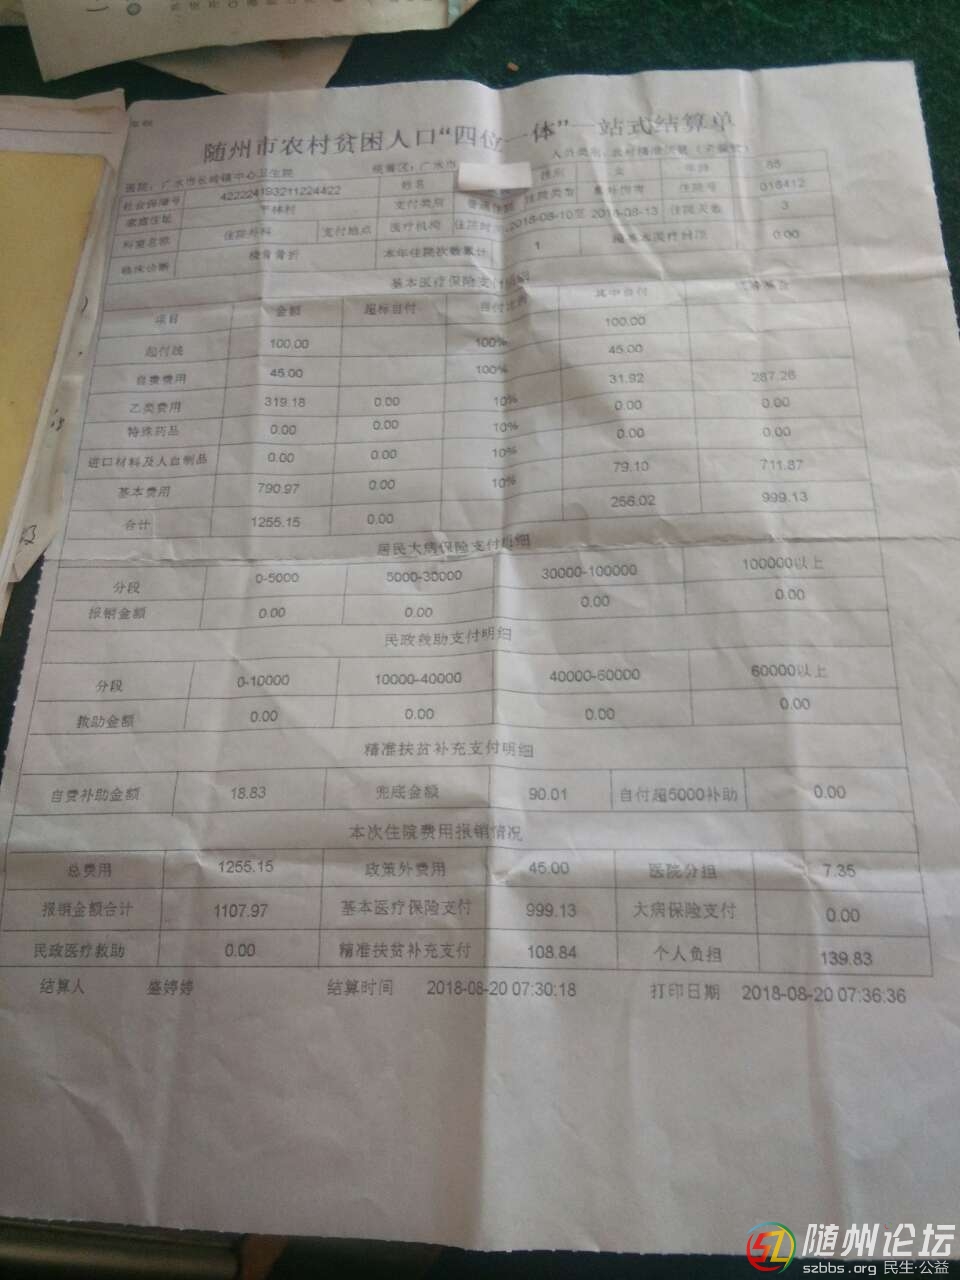 随州市农村贫困人口“四位一体”一站式结算单
医院：广水市长岭镇中心卫生院 统筹区：广水市
社会保障号 422224193211224422 姓名 性别 女 年龄 85
家庭住址 平林村 支付类别 普通住院 住院类型 住院号 016412
科室名称 住院外科 支付地点 医疗机构 住院时间 2018-08-10至 2018-08-13 住院天数 3
临床诊断 桡骨骨折 本年住院次数累计 1 0.00
基本医疗保险支付明细
项目 金额 超标自付 自付比例 其中自付 统筹基金
起付线 100.00 100% 100.00
自费费用 45.00 100% 45.00
乙类费用 319.18 0.00 10% 31.92 287.26
特殊药品 0.00 0.00 10% 0.00 0.00
进口材料及人血制品 0.00 0.00 10% 0.00 0.00
基本费用 790.97 0.00 10% 79.10 711.87
合计 1255.15 0.00 256.02 999.13
居民大病保险支付明细
分段 0-5000 5000-30000 30000-100000 100000以上
报销金额 0.00 0.00 0.00 0.00
民政救助支付明细
分段 0-10000 10000-40000 40000-60000 60000以上
救助金额 0.00 0.00 0.00 0.00
精准扶贫补充支付明细
自费补助金额 18.83 兜底金额 90.01 自付超5000补助 0.00
本次住院费用报销情况
总费用 1255.15 政策外费用 45.00 医院分担 7.35
报销金额合计 1107.97 基本医疗保险支付 999.13 大病保险支付 0.00
民政医疗救助 0.00 精准扶贫补充支付 108.84 个人负担 139.83
结算人 盛婷婷 结算时间 2018-08-20 07:30:18 打印日期 2018-08-20 07:36:36
随州论坛
szbbs.org 民生·公益